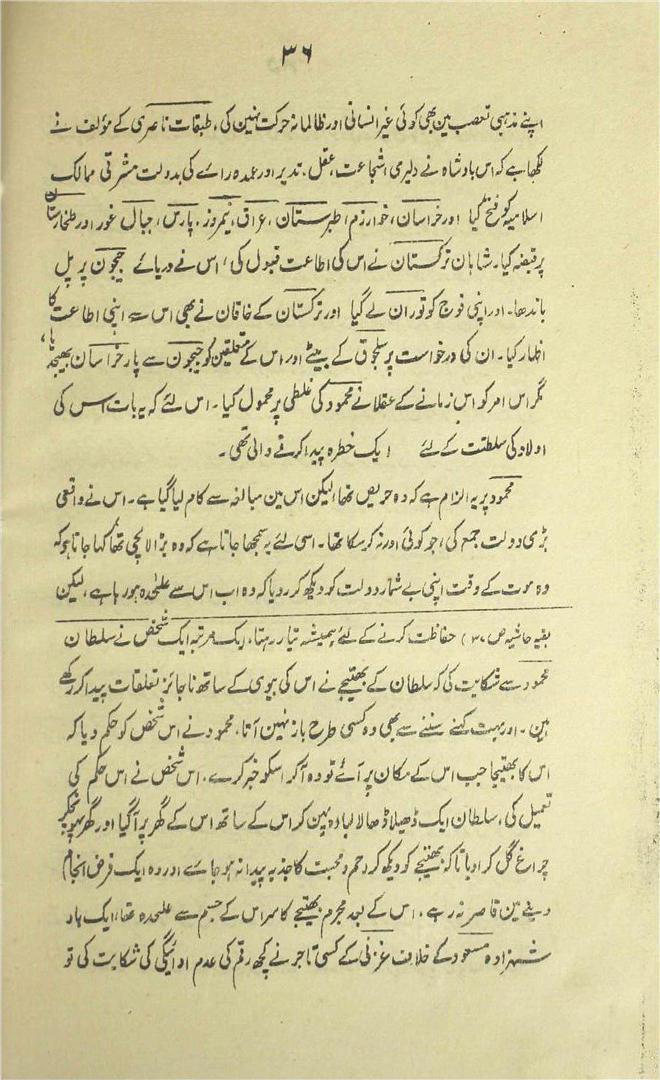 ۳۶
اپنے مذہبی تعصب مین بھی کوئی غیر انسانی اور ظالمانہ حرکت نہین کی، طبقات ناصری کے مؤلف نے
لکھا ہے کہ اس بادشاہ نے دلیری اشجاعت، عقل، تدبر اور عمدہ رائے کی بدولت مشرقی ممالک
اسلامیہ کو فتح کیا اور خراسان، خوارزم، طبرستان، عراق، نیمروز، پارس، جبال غور اور طخارستان
پر قبضہ کیا۔ شاہان ترکستان نے اس کی اطاعت قبول کی، اس نے دریائے جیحون پر پل
باندھا۔ اور اپنی فوج کو توران لے گیا اور ترکستان کے خاقان نے بھی اس سے اپنی اطاعت کا
اظہار کیا۔ ان کی درخواست پر سلجوق کے بیٹے اور اس کے متعلقین کو جیحون سے پار خراسان بھیجدیا،
مگر اس امر کو اس زمانے کے عقلا نے محمود کی غلطی پر محمول کیا۔ اس لئے کہ یہ بات اس کی
اولاد کی سلطنت کے لئے ایک خطرہ پیدا کرنے والی تھی۔
محمود پر یہ الزام ہے کہ وہ حریص تھا، لیکن اس مین مبالغہ سے کام لیا گیا ہے۔ اس نے واقعی
بڑی دولت جمع کی، جو کوئی اور نہ کرسکا تھا۔ اسی لئے یہ سمجھا جاتا ہے کہ وہ بڑا لالچی تھا، کہا جاتا ہو کہ
وہ موت کے وقت اپنی بے شمار دولت کو دیکھ کر رو دیا کہ وہ اب اس سے علٰحدہ ہو رہا ہے، لیکن
بقیہ حاشیہ ص ۳۷) حفاظت کرنے کے لئے ہمیشہ تیار رہتا، ایک مرتبہ ایک شخص نے سلطان
محمود سے شکایت کی کہ سلطان کے بھتیجے نے اس کی بیوی کے ساتھ ناجائز تعلقات پیدا کر رکھے
ہین۔ اور بہت کہنے سننے سے بھی وہ کسی طرح باز نہین آتا، محمود نے اس شخص کو حکم دیا کہ
اس کا بھتیجا جب اس کے مکان پر آئے تو وہ آکر اسکو خبر کرے، اس شخص نے اس حکم کی
تعمیل کی، سلطان ایک ڈھیلا ڈھالا لبادہ پہن کر اس کے ساتھ اس کے گھر پر آگیا اور گھر پہونچکر
چراغ گل کرادیا تاکہ بھتیجے کو دیکھ کر رحم و محبت کا جذبہ پیدا نہ ہوجائے اور وہ ایک فرض انجام
دینے مین قاصر نہ رہے، اس کے بعد مجرم بھتیجے کا سر اس کے جسم سے علٰحدہ تھا، ایک بار
شہزادہ مسعود کے خلاف غزنی کے کسی تاجر نے کچھ رقم کی عدم ادائیگی کی شکایت کی تو